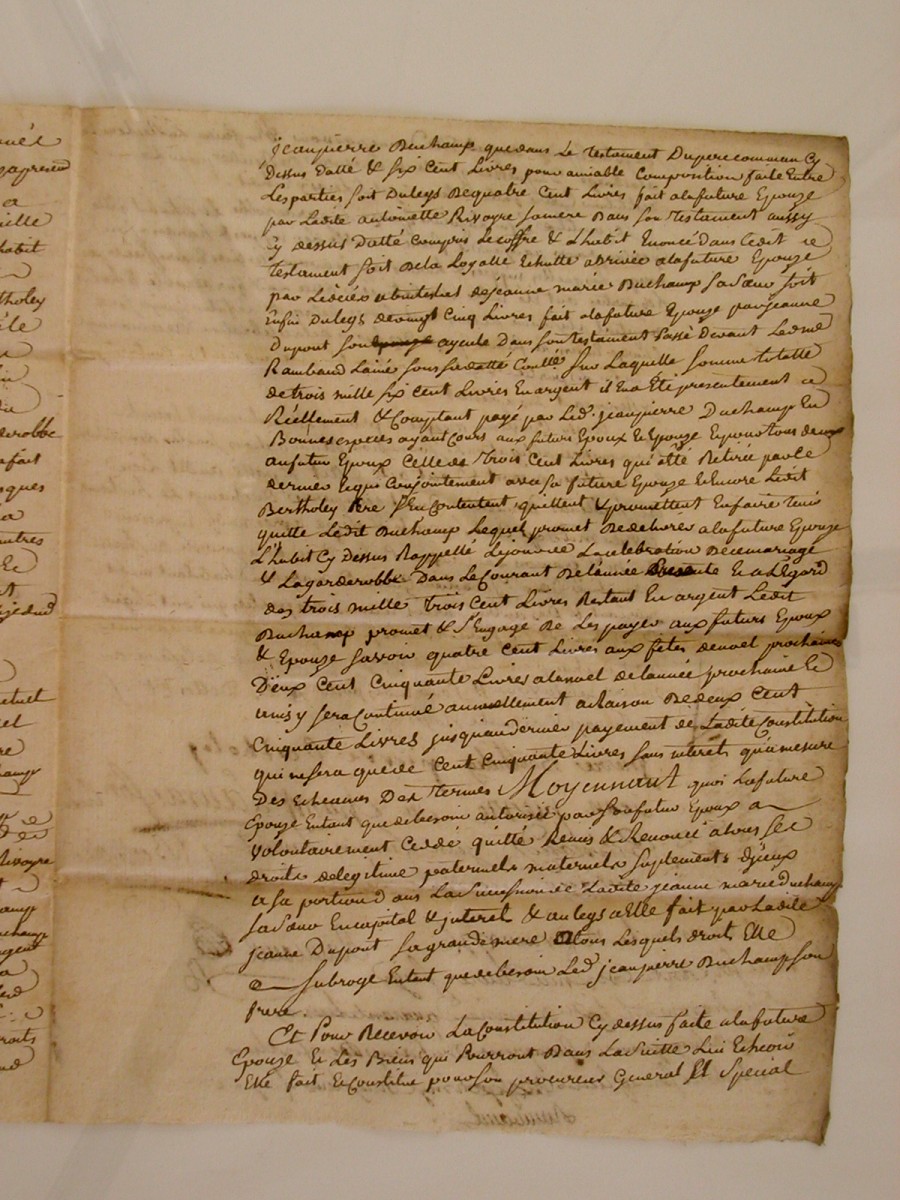 nuél
a
uille
habit
rtholey
ele
derobbe
fait
sques
a
autres
Ec
Rivoyre
amp
uchamp
argent
a
droits
Jeanpierre Duchamp que dans Le testament Dupere comman Cy
Dessus Datté & Six Cent Livres pour amiable Composition faite Entre
Les parties soit Duleys De quatre Cent Livres fait alafuture Epouze
par Ladite antoinette Rivoyre Samere Dans Son testament aussy
Cy dessus Datté Compris Lecoffre & Lhabit Enoncé Dans Ledit
testament soit De la Loyalle Echutte arrivée alafuture Epouze
par Ledécès abintestat dejeanne marie Duchamp Sasœur soit
Enfin Duleys devingt Cinq Livres fait alafuture Epouze parjeanne
Dupont Son ayeule Dans Son testament Passé Devant Ledme
Rambaud Lainé soussidatté Conllé Sur Laquelle Somme totalle
de trois mille Six Cent Livres En argent il En a Eté presentement
Réellement & Comptant payé par Led. jeanpierre Duchamp En
Bonnes especes ayant Cours aux futurs Epoux & Epouze Epour tous deux
aufutur Epoux Celle de trois Cent Livres qui aété Retirée par le
dernier Equi Conjointement avec sa future Epouze & Encore Ledit
Bertholey Pere S'En Contentent quittent & promettent En faire tenir
quitte Ledit Duchamp Lequel promet De delivrer alafuture Epouze
L'habit Cy Dessus Rappellé Lejour de La celebration De cemariage
& Lagarderobbe Dans Le Courant De l'année Et a Légard
des trois mille trois Cent Livres Restant En argent Ledit
Duchamp promet & S'Engage De Les payer aux futurs Epoux
& Epouze Savoir quatre Cent Livres aux fetes denoel prochaine
Deux Cent Cinquante Livres alanoel de lannée prochaine Et
ainsy Sera Continué annuellement araison De deux Cent
Cinquante Livres jusquau dernier payement de Ladite Constitution
qui ne Sera que de Cent Cinquante Livres Sans interets qu'amesure
Des Echeances Des termes Moyennant quoi Lafuture
Epouze Entant que debesoin autorisée par Son futur Epoux a
Volontairement Cedé quitté Remis & Renoncé atous Ses
droits delegitime paternels maternels suplements D'jceux
asa portion Dans La Succession de Ladite jeanne marie Duchamp
Sa Sœur En capital & jnterets & au legs a Elle fait par Ladite
jeanne Dupont Sa grande mere tous Lesquels droits Elle
a Subrogé Entant que debesoin Led. jeanpierre Duchamp Son
frere.
Et Pour Recevoir La Constitution Cy dessus faite alafuture
Epouze & Les Biens qui Pourront Dans La Suitte Lui Echeoir
Elle fait & Constitue pour Son procureur General Et Special